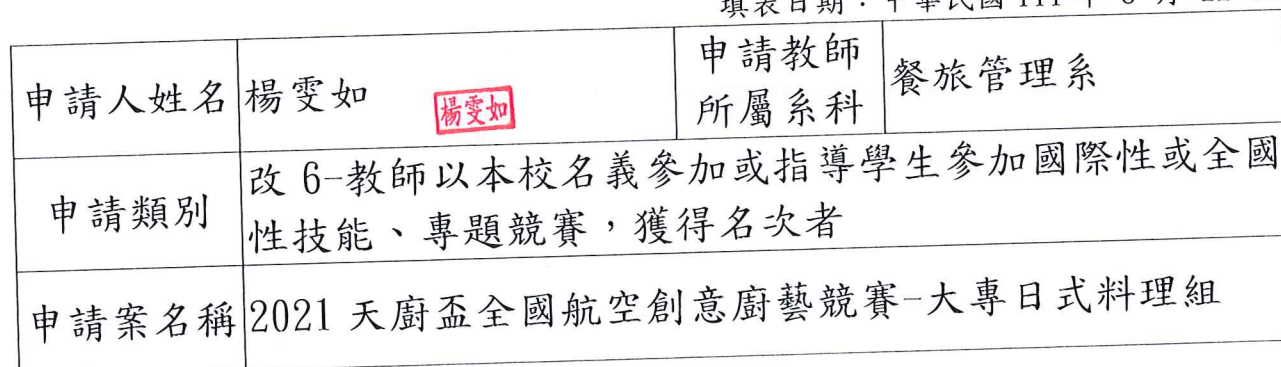 填表日期：中華民國 111 年
申請人姓名 楊雯如 楊雯如 申請教師所屬系科 餐旅管理系
申請類別 改 6-教師以本校名義參加或指導學生參加國際性或全國
性技能、專題競賽，獲得名次者
申請案名稱 2021 天廚盃全國航空創意廚藝競賽-大專日式料理組